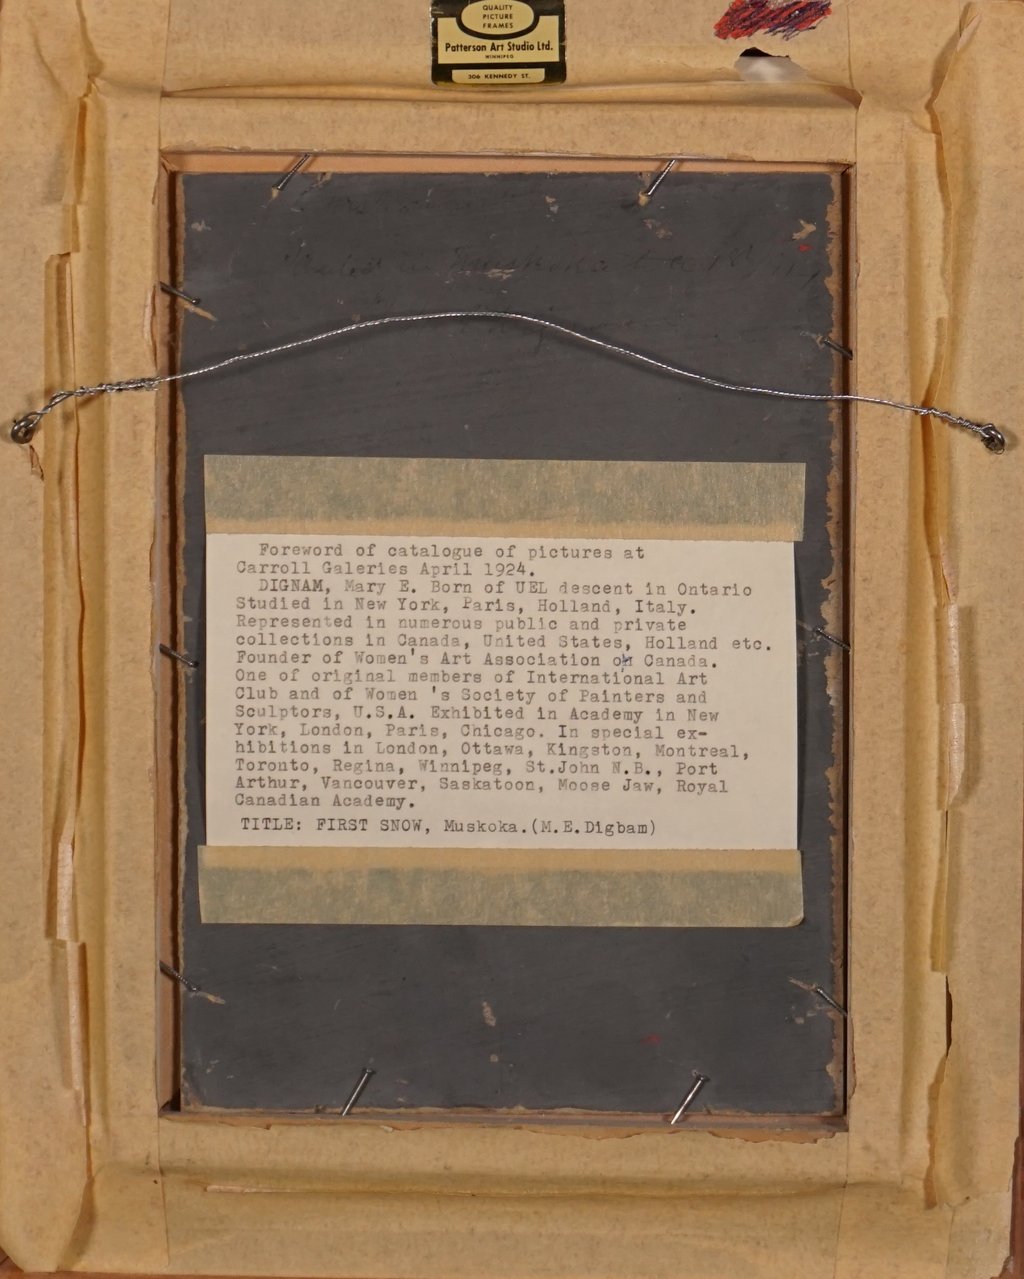 QUALITY
PICTURE
FRAMES
Patterson Art Studio Ltd.
WINNIPEG
306 KENNEDY ST.
Muskoka
Foreword of catalogue of pictures at
Carroll Galeries April 1924.
DIGNAM, Mary E. Born of UEL descent in Ontario
Studied in New York, Paris, Holland, Italy.
Represented in numerous public and private
collections in Canada, United States, Holland etc.
Founder of Women's Art Association of Canada.
One of original members of International Art
Club and of Women 's Society of Painters and
Sculptors, U.S.A. Exhibited in Academy in New
York, London, Paris, Chicago. In special ex-
hibitions in London, Ottawa, Kingston, Montreal,
Toronto, Regina, Winnipeg, St.John N.B., Port
Arthur, Vancouver, Saskatoon, Moose Jaw, Royal
Canadian Academy.
TITLE: FIRST SNOW, Muskoka.(M.E.Digbam)